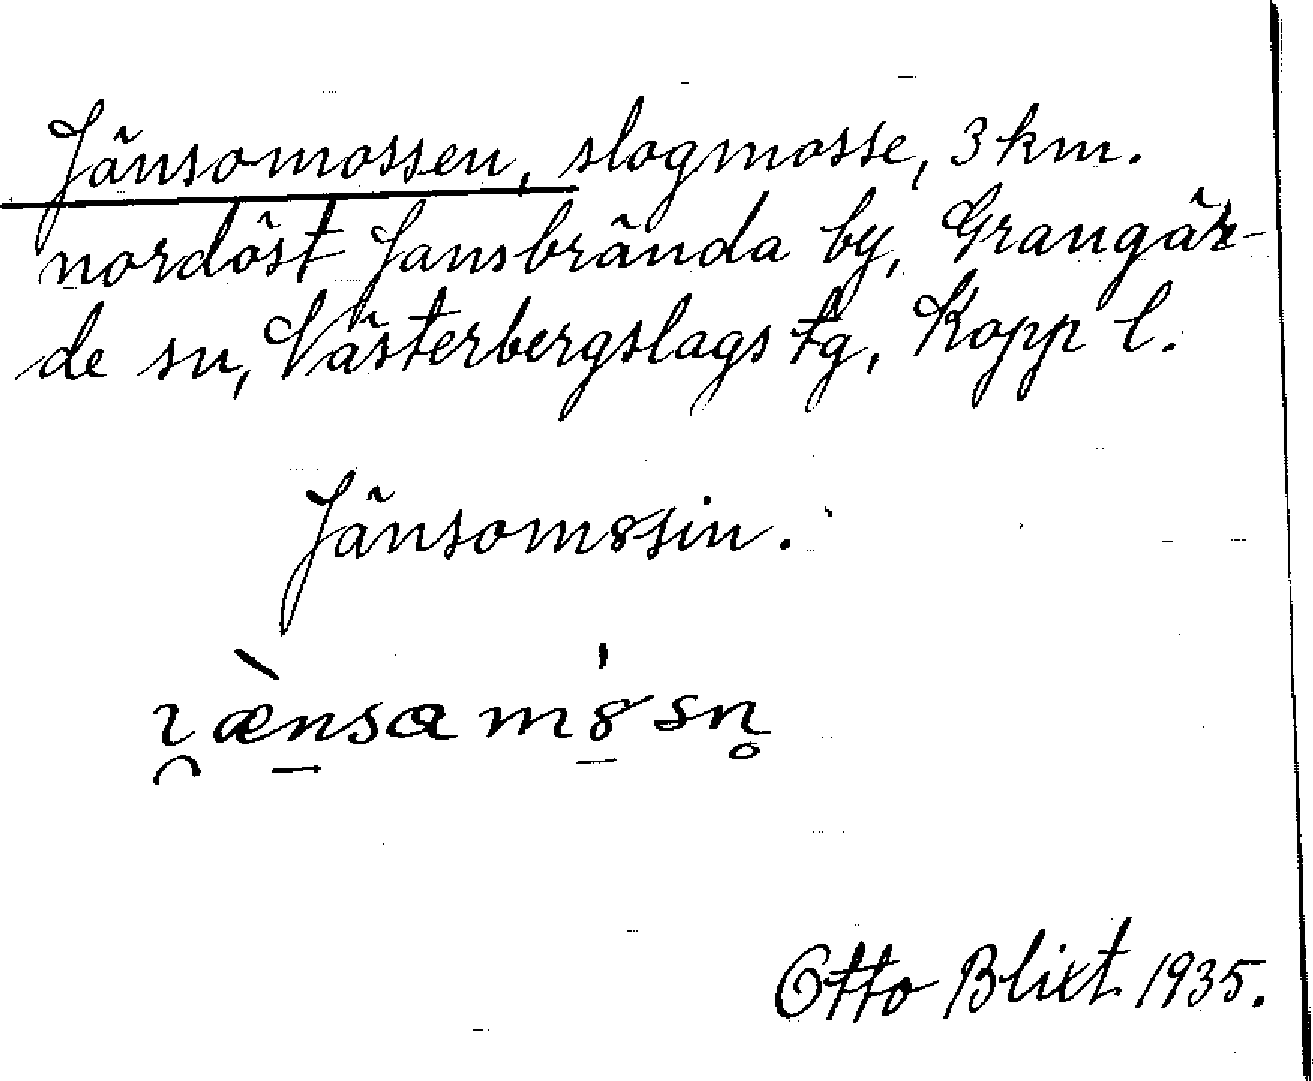 Jänsomossen, slogmosse, 3 km.
nordöst Jansbrända by, Grangär-
de sn, Västerbergslags tg, Kopp l.
Jänsom8sin.
ı̯æ̀nsam8́sn̥
Otto Blixt 1935.